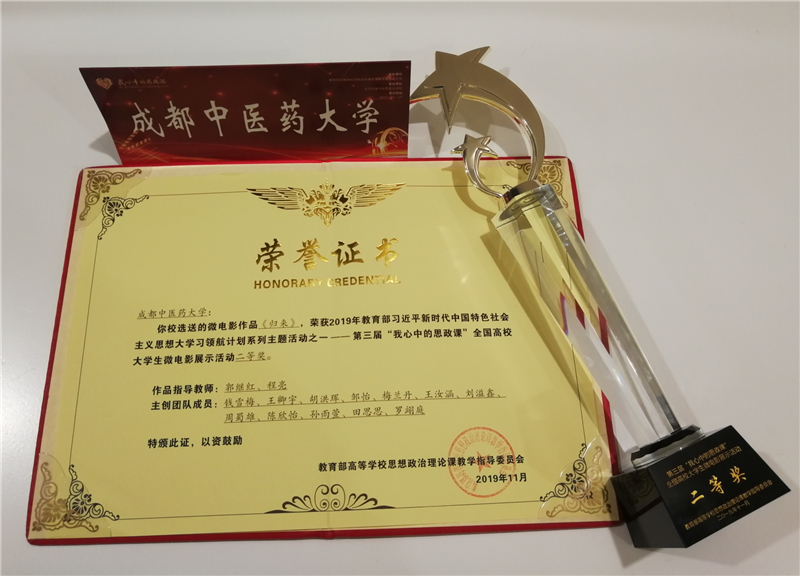 成都中医药大学
荣誉证书
HONORARY CREDENTIAL
成都中医药大学：
你校选送的微电影作品《归来》，荣获2019年教育部习近平新时代中国特色社会
主义思想大学习领航计划系列主题活动之一——第三届“我心中的思政课”全国高校
大学生微电影展示活动二等奖。
作品指导教师：郭继红、程亮
主创团队成员：钱雪梅、王卿宇、胡洪珲、邹怡、梅兰丹、王汝涵、刘溢鑫、
周蜀雄、陈欣怡、孙雨萱、田思思、罗翊庭
特颁此证，以资鼓励
教育部高等学校思想政治理论课教学指导委员会
2019年11月
第三届“我心中的思政课”
全国高校大学生微电影展示活动
二等奖
教育部高等学校思想政治理论课教学指导委员会
二〇一九年十一月